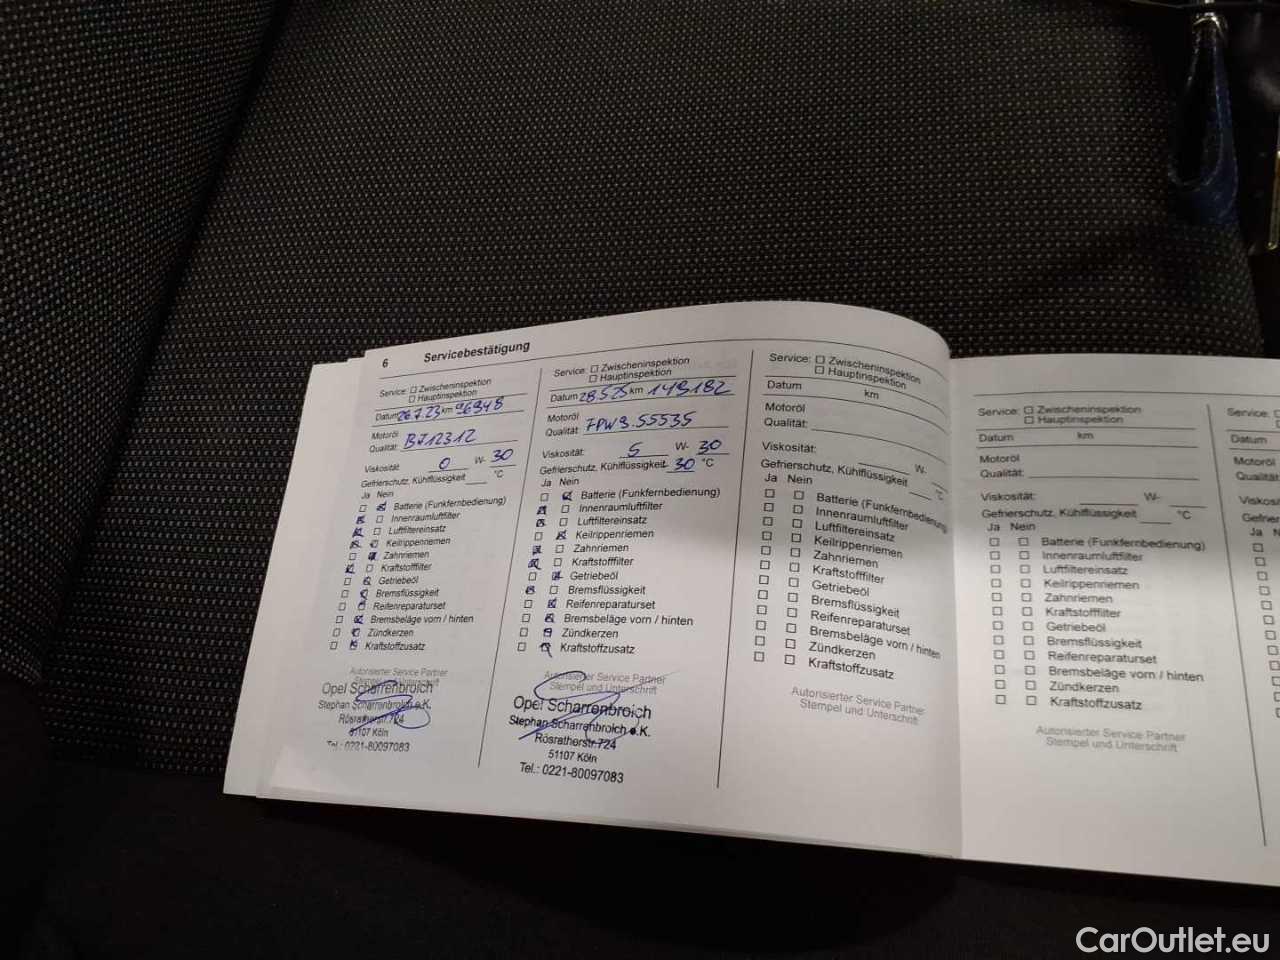 6 Servicebestätigung
Service: ☐ Zwischeninspektion
☐ Hauptinspektion
Datum 26.7.23 km 96948
Motoröl
Qualität: B712312
Viskosität: 0 W- 30
Gefrierschutz, Kühlflüssigkeit °C
Ja Nein
Batterie (Funkfernbedienung)
Innenraumluftfilter
Luftfiltereinsatz
Keilrippenriemen
Zahnriemen
Kraftstofffilter
Getriebeöl
Bremsflüssigkeit
Reifenreparaturset
Bremsbeläge vorn / hinten
Zündkerzen
Kraftstoffzusatz
Autorisierter Service Partner
Stempel und Unterschrift
Opel Scharrenbroich
Stephan Scharrenbroich e.K.
Rösratherstr. 724
51107 Köln
Tel.: 0221-80097083
Service: ☐ Zwischeninspektion
☐ Hauptinspektion
Datum 28.5.25 km 149182
Motoröl
Qualität: FPW9.55535
Viskosität: 5 W- 30
Gefrierschutz, Kühlflüssigkeit -30 °C
Ja Nein
Batterie (Funkfernbedienung)
Innenraumluftfilter
Luftfiltereinsatz
Keilrippenriemen
Zahnriemen
Kraftstofffilter
Getriebeöl
Bremsflüssigkeit
Reifenreparaturset
Bremsbeläge vorn / hinten
Zündkerzen
Kraftstoffzusatz
Autorisierter Service Partner
Stempel und Unterschrift
Opel Scharrenbroich
Stephan Scharrenbroich e.K.
Rösratherstr. 724
51107 Köln
Tel.: 0221-80097083
Service: ☐ Zwischeninspektion
☐ Hauptinspektion
Datum km
Motoröl
Qualität:
Viskosität: W-
Gefrierschutz, Kühlflüssigkeit °C
Ja Nein
Batterie (Funkfernbedienung)
Innenraumluftfilter
Luftfiltereinsatz
Keilrippenriemen
Zahnriemen
Kraftstofffilter
Getriebeöl
Bremsflüssigkeit
Reifenreparaturset
Bremsbeläge vorn / hinten
Zündkerzen
Kraftstoffzusatz
Autorisierter Service Partner
Stempel und Unterschrift
Service: ☐ Zwischeninspektion
☐ Hauptinspektion
Datum km
Motoröl
Qualität:
Viskosität: W-
Gefrierschutz, Kühlflüssigkeit °C
Ja Nein
Batterie (Funkfernbedienung)
Innenraumluftfilter
Luftfiltereinsatz
Keilrippenriemen
Zahnriemen
Kraftstofffilter
Getriebeöl
Bremsflüssigkeit
Reifenreparaturset
Bremsbeläge vorn / hinten
Zündkerzen
Kraftstoffzusatz
Autorisierter Service Partner
Stempel und Unterschrift
Service:
Datum
Motoröl
Ja
CarOutlet.eu